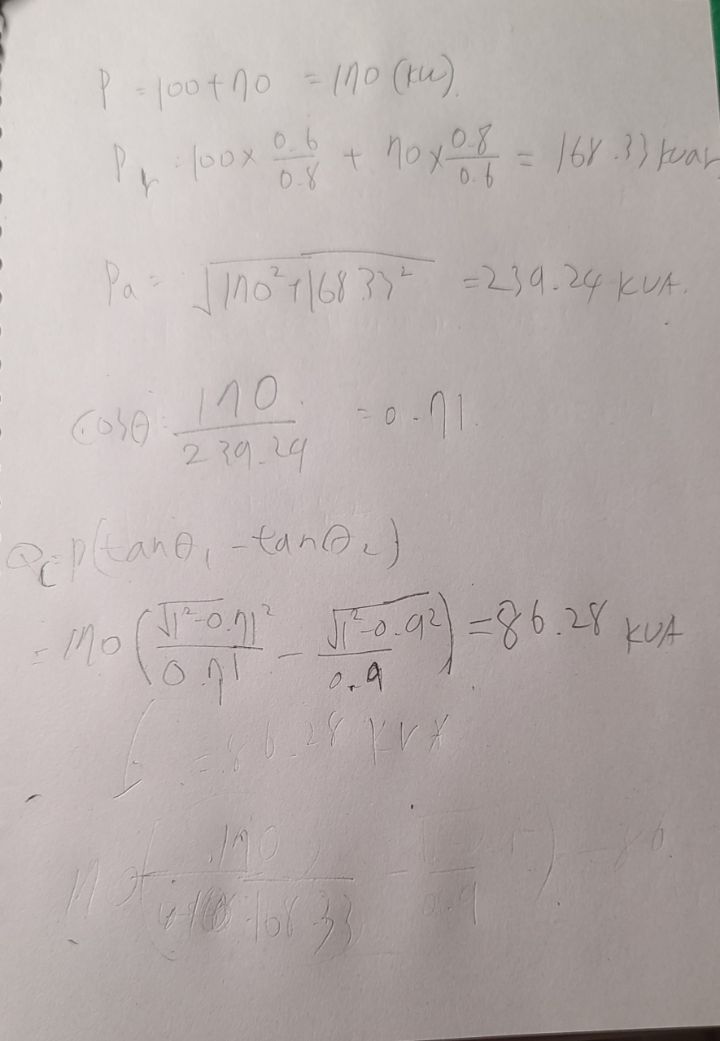 P = 100+70 = 170 (kw).
Pr = 100 × 0.6/0.8 + 70 × 0.8/0.6 = 168.33 kvar
Pa = √170²+168.33² = 239.24 KVA.
cosθ = 170/239.24 = 0.71.
Qc = P(tanθ₁ - tanθ₂)
= 170 (√1²-0.71²/0.71 - √1²-0.9²/0.9) = 86.28 KVA
= 86.28 KVA
170
168.33
0.9